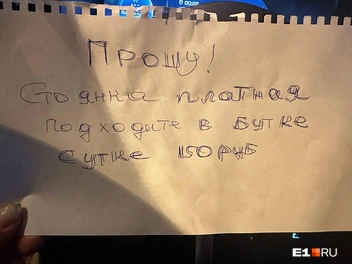 Прошу!
Стоянка платная
подходите в бутке
сутке 150 руб
E1.RU